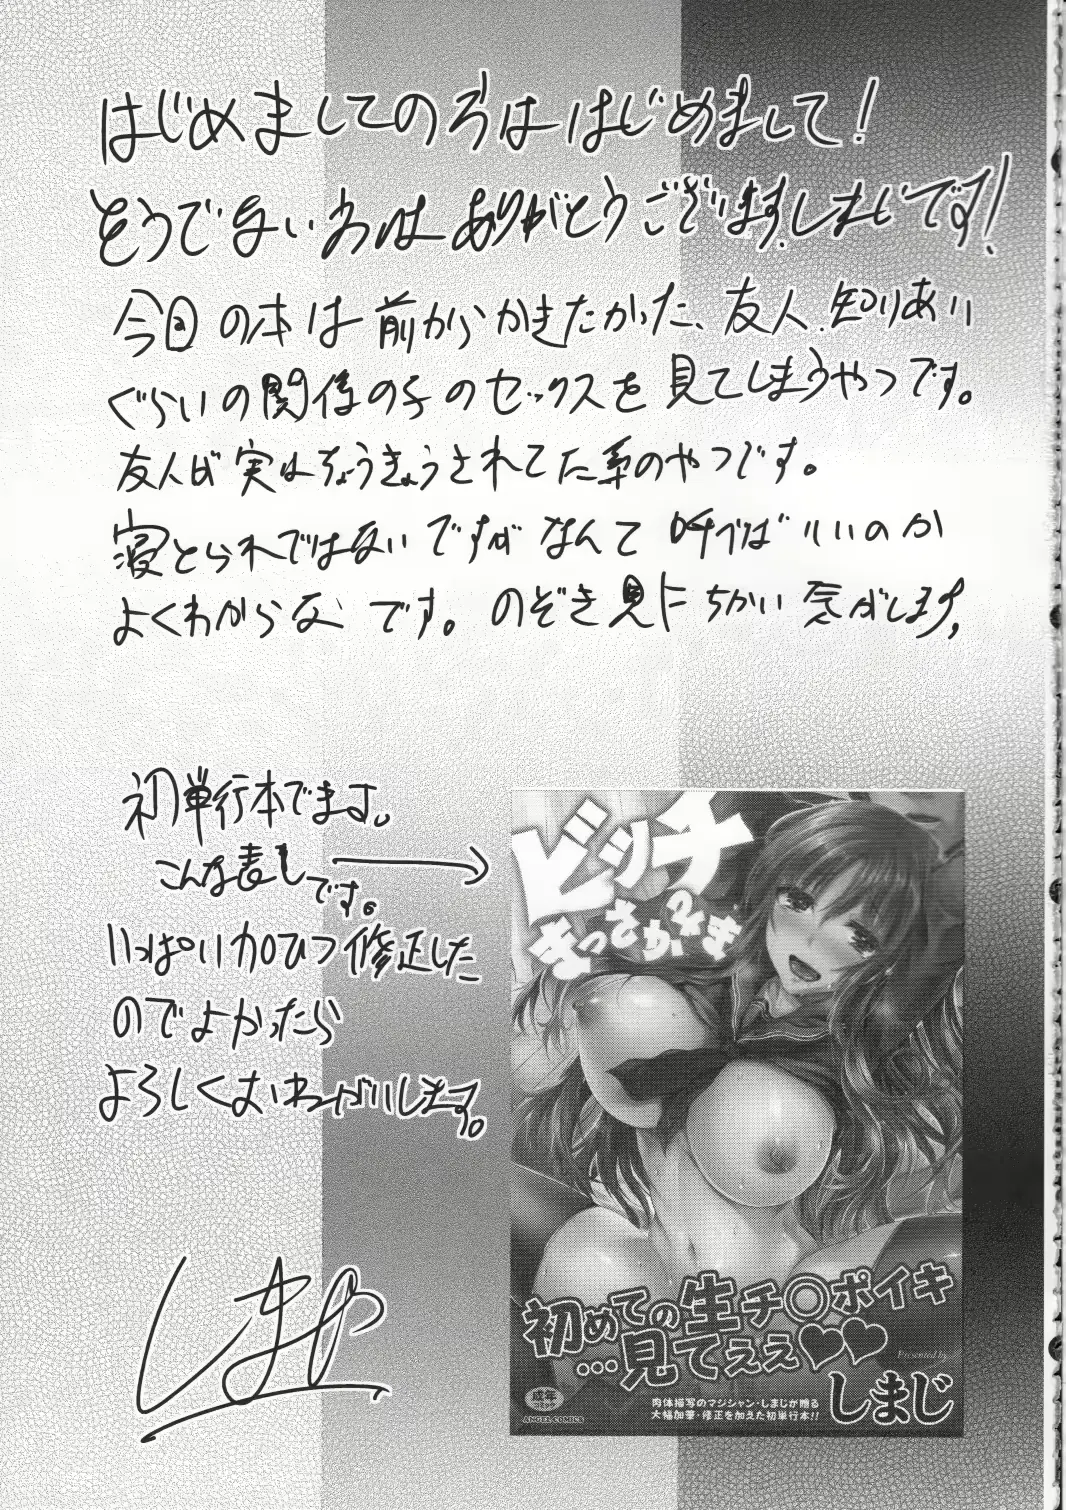 はじめましての方ははじめまして!
そうでない方はありがとうございます。しまじです!
今回の本は前からかきたかった、友人、知りあい
ぐらいの関係の子のセックスを見てしまうやつです。
友人が実はちょうきょうされてた系のやつです。
寝とられではないですがなんて呼べばいいのか
よくわからないです。のぞき見にちかい気がします。
初単行本でます。
こんな表しです。→
いっぱい加ひつ修正した
のでよかったら
よろしくおねがいします。
ビッチ
まっさかさま
初めての生チ◯ポイキ
…見てぇぇ♥♥
Presented by
しまじ
成年
コミック
ANGEL COMICS
肉体描写のマジシャン・しまじが贈る
大幅加筆・修正を加えた初単行本!!